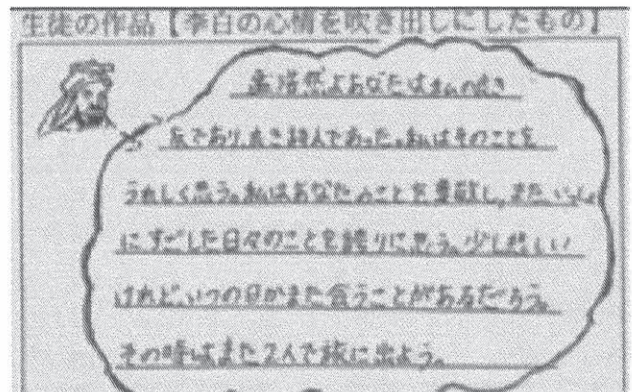 生徒の作品【李白の心情を吹き出しにしたもの】
孟浩然よあなたは私の良き
友であり、良き詩人であった。私はそのことを
うれしく思う。私はあなたのことを尊敬し、また、いっしょ
にすごした日々のことを誇りに思う。少し悲しい
けれど、いつの日かまた会うことがあるだろう。
その時はまた2人で旅に出よう。